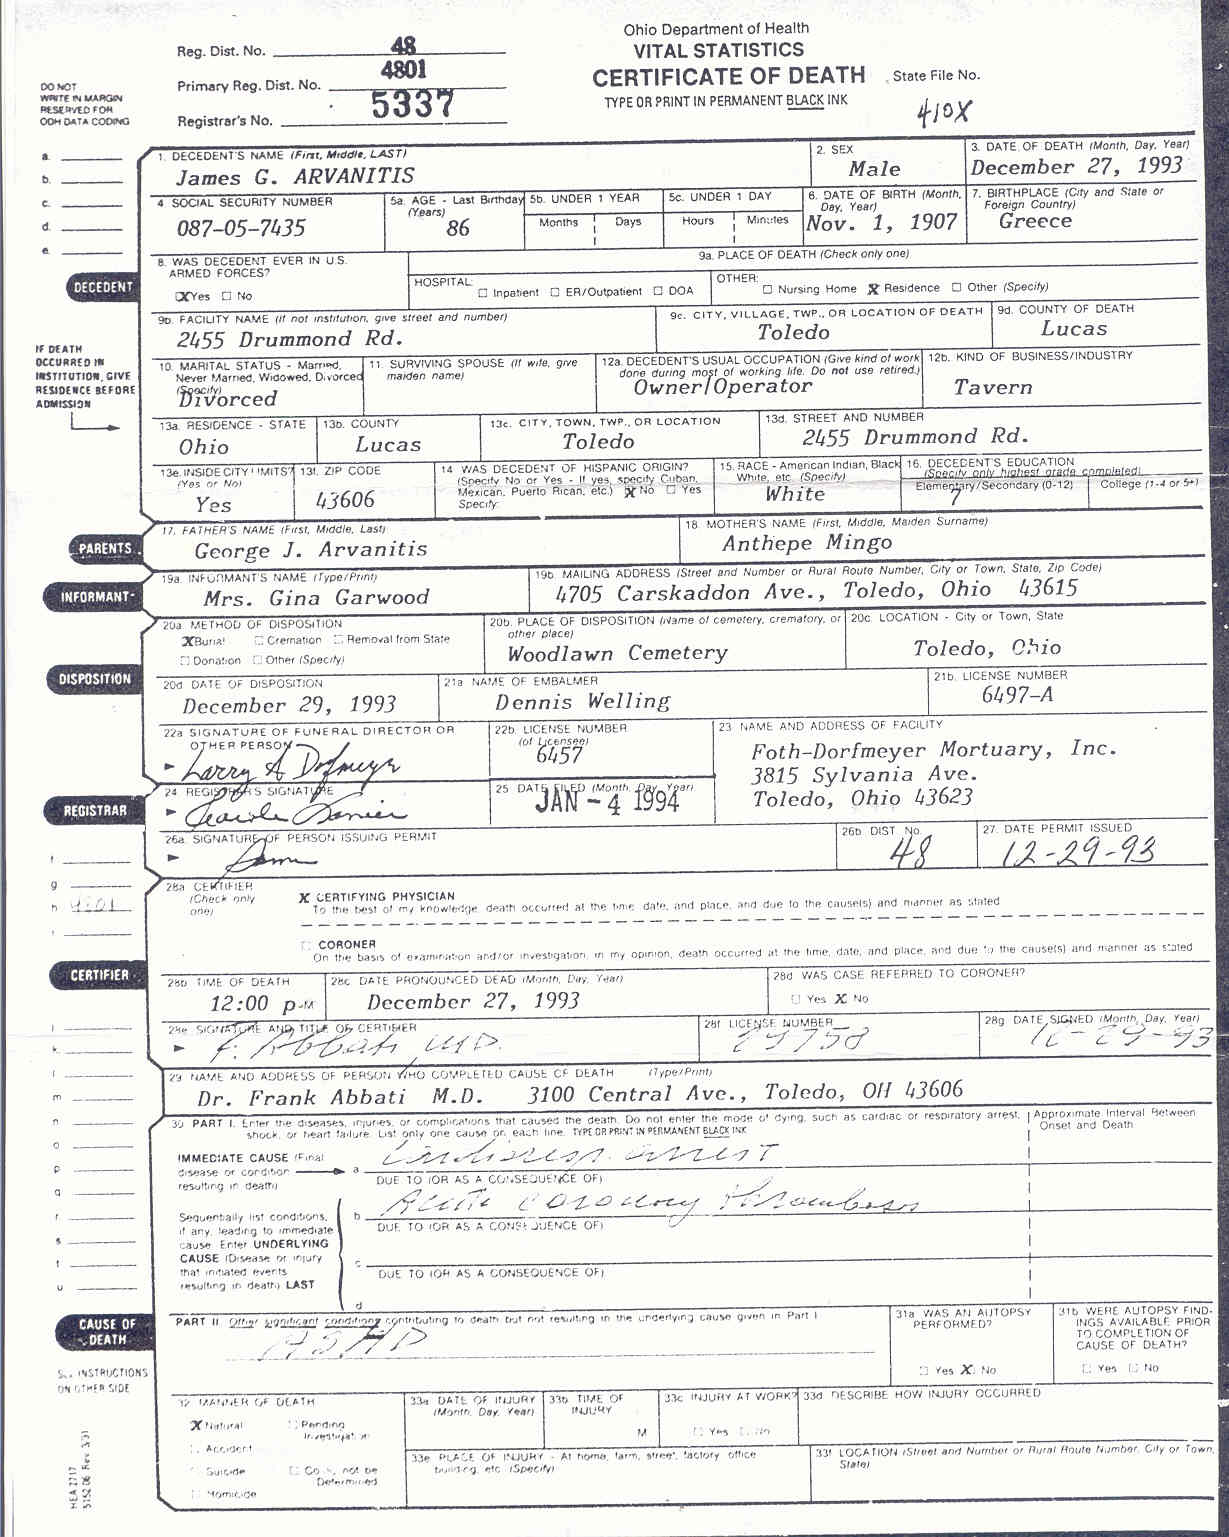 Ohio Department of Health
VITAL STATISTICS
CERTIFICATE OF DEATH
TYPE OR PRINT IN PERMANENT BLACK INK
State File No.
410X
Reg. Dist. No. 48
Primary Reg. Dist. No. 4801
Registrar's No. 5337
DO NOT
WRITE IN MARGIN
RESERVED FOR
ODH DATA CODING
a.
b.
c.
d.
e.
DECEDENT
1. DECEDENT'S NAME (First, Middle, LAST)
James G. ARVANITIS
2. SEX
Male
3. DATE OF DEATH (Month, Day, Year)
December 27, 1993
4 SOCIAL SECURITY NUMBER
087-05-7435
5a. AGE - Last Birthday
(Years)
86
5b. UNDER 1 YEAR
Months Days
5c. UNDER 1 DAY
Hours Minutes
6. DATE OF BIRTH (Month,
Day, Year)
Nov. 1, 1907
7. BIRTHPLACE (City and State or
Foreign Country)
Greece
8. WAS DECEDENT EVER IN U.S.
ARMED FORCES?
X Yes No
9a. PLACE OF DEATH (Check only one)
HOSPITAL:
Inpatient ER/Outpatient DOA
OTHER:
Nursing Home X Residence Other (Specify)
9b. FACILITY NAME (If not institution, give street and number)
2455 Drummond Rd.
9c. CITY, VILLAGE, TWP., OR LOCATION OF DEATH
Toledo
9d. COUNTY OF DEATH
Lucas
IF DEATH
OCCURRED IN
INSTITUTION, GIVE
RESIDENCE BEFORE
ADMISSION
10. MARITAL STATUS - Married,
Never Married, Widowed, Divorced
(Specify)
Divorced
11. SURVIVING SPOUSE (If wife, give
maiden name)
12a. DECEDENT'S USUAL OCCUPATION (Give kind of work
done during most of working life. Do not use retired.)
Owner/Operator
12b. KIND OF BUSINESS/INDUSTRY
Tavern
13a. RESIDENCE - STATE
Ohio
13b. COUNTY
Lucas
13c. CITY, TOWN, TWP., OR LOCATION
Toledo
13d. STREET AND NUMBER
2455 Drummond Rd.
13e. INSIDE CITY LIMITS?
(Yes or No)
Yes
13f. ZIP CODE
43606
14 WAS DECEDENT OF HISPANIC ORIGIN?
(Specify No or Yes - If yes, specify Cuban,
Mexican, Puerto Rican, etc.) X No Yes
Specify:
15. RACE - American Indian, Black,
White, etc. (Specify)
White
16. DECEDENT'S EDUCATION
(Specify only highest grade completed)
Elementary/Secondary (0-12) College (1-4 or 5+)
7
PARENTS
17. FATHER'S NAME (First, Middle, Last)
George J. Arvanitis
18. MOTHER'S NAME (First, Middle, Maiden Surname)
Anthepe Mingo
INFORMANT
19a. INFORMANT'S NAME (Type/Print)
Mrs. Gina Garwood
19b. MAILING ADDRESS (Street and Number or Rural Route Number, City or Town, State, Zip Code)
4705 Carskaddon Ave., Toledo, Ohio 43615
DISPOSITION
20a. METHOD OF DISPOSITION
X Burial Cremation Removal from State
Donation Other (Specify)
20b. PLACE OF DISPOSITION (Name of cemetery, crematory, or
other place)
Woodlawn Cemetery
20c. LOCATION - City or Town, State
Toledo, Ohio
20d DATE OF DISPOSITION
December 29, 1993
21a NAME OF EMBALMER
Dennis Welling
21b. LICENSE NUMBER
6497-A
22a SIGNATURE OF FUNERAL DIRECTOR OR
OTHER PERSON
Larry A Dorfmeyer
22b. LICENSE NUMBER
(of Licensee)
6457
23 NAME AND ADDRESS OF FACILITY
Foth-Dorfmeyer Mortuary, Inc.
3815 Sylvania Ave.
Toledo, Ohio 43623
REGISTRAR
24 REGISTRAR'S SIGNATURE
25 DATE FILED (Month, Day, Year)
JAN -4 1994
26a SIGNATURE OF PERSON ISSUING PERMIT
26b DIST No.
48
27. DATE PERMIT ISSUED
12-29-93
f
g
h 4801
i
28a CERTIFIER
(Check only
one)
X CERTIFYING PHYSICIAN
To the best of my knowledge, death occurred at the time, date, and place, and due to the cause(s) and manner as stated
CORONER
On the basis of examination and/or investigation, in my opinion, death occurred at the time, date, and place, and due to the cause(s) and manner as stated
CERTIFIER
28b TIME OF DEATH
12:00 p M
28c DATE PRONOUNCED DEAD (Month, Day, Year)
December 27, 1993
28d WAS CASE REFERRED TO CORONER?
Yes X No
28e SIGNATURE AND TITLE OF CERTIFIER
F. Abbati, MD.
28f LICENSE NUMBER
28g DATE SIGNED (Month, Day, Year)
12-29-93
29 NAME AND ADDRESS OF PERSON WHO COMPLETED CAUSE OF DEATH (Type/Print)
Dr. Frank Abbati M.D. 3100 Central Ave., Toledo, OH 43606
j
k
l
m
n
o
p
q
r
s
t
u
30 PART I. Enter the diseases, injuries, or complications that caused the death. Do not enter the mode of dying, such as cardiac or respiratory arrest,
shock, or heart failure. List only one cause on each line. TYPE OR PRINT IN PERMANENT BLACK INK
Approximate Interval Between
Onset and Death
IMMEDIATE CAUSE (Final
disease or condition
resulting in death)
a Cardioresp. arrest
DUE TO (OR AS A CONSEQUENCE OF)
Sequentially list conditions,
if any, leading to immediate
cause. Enter UNDERLYING
CAUSE (Disease or injury
that initiated events
resulting in death) LAST
b Acute coronary thrombosis
DUE TO (OR AS A CONSEQUENCE OF)
c
DUE TO (OR AS A CONSEQUENCE OF)
d
CAUSE OF
DEATH
PART II. Other significant conditions contributing to death but not resulting in the underlying cause given in Part I
ASHD
31a WAS AN AUTOPSY
PERFORMED?
Yes X No
31b WERE AUTOPSY FIND-
INGS AVAILABLE PRIOR
TO COMPLETION OF
CAUSE OF DEATH?
Yes No
SEE INSTRUCTIONS
ON OTHER SIDE
32 MANNER OF DEATH
X Natural Pending
Investigation
Accident
Suicide Could not be
Determined
Homicide
33a DATE OF INJURY
(Month, Day, Year)
33b TIME OF
INJURY
M
33c INJURY AT WORK?
Yes No
33d DESCRIBE HOW INJURY OCCURRED
33e PLACE OF INJURY - At home, farm, street, factory, office
building, etc (Specify)
33f LOCATION (Street and Number or Rural Route Number, City or Town,
State)
HEA 2717
5152.06 Rev 3/91